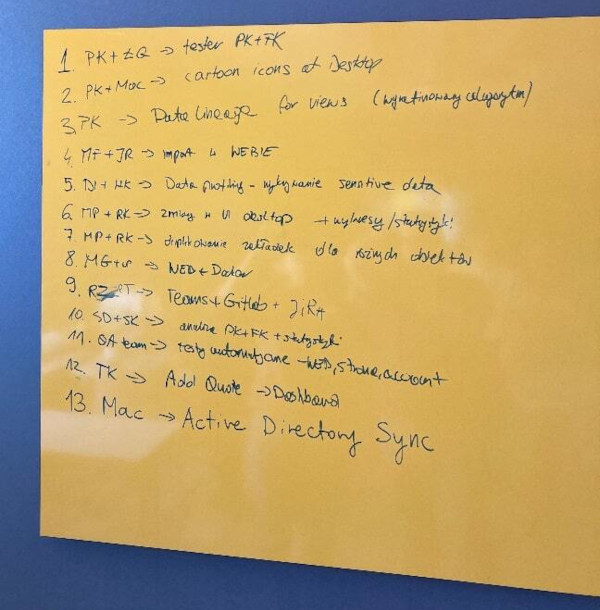 1. PK + ŁQ → tester PK+FK
2. PK + Mac → cartoon icons at Desktop
3. PK → Data Lineage for views (wyrafinowany algorytm)
4. MF + JR → import w WEBIE
5. + → Data profiling - wykrywanie sensitive data
6. MP + RK → zmiany w UI desktop + wykresy/statystyki
7. MP + RK → duplikowanie zakładek dla różnych obiektów
8. MG + → WEB + Dator
9. → Teams + Gitlab + JiRA
10. SD + SK → analiza PK + FK + statystyki
11. QA team → testy automatyczne - WEB, strona, account
12. TK → Add Quote → Dashboard
13. Mac → Active Directory Sync